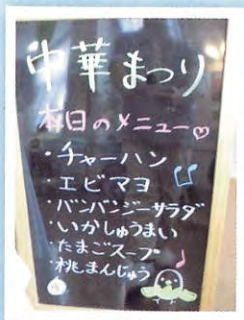 中華まつり
本日のメニュー♡
・チャーハン
・エビマヨ
・バンバンジーサラダ
・いかしゅうまい
・たまごスープ
・桃まんじゅう